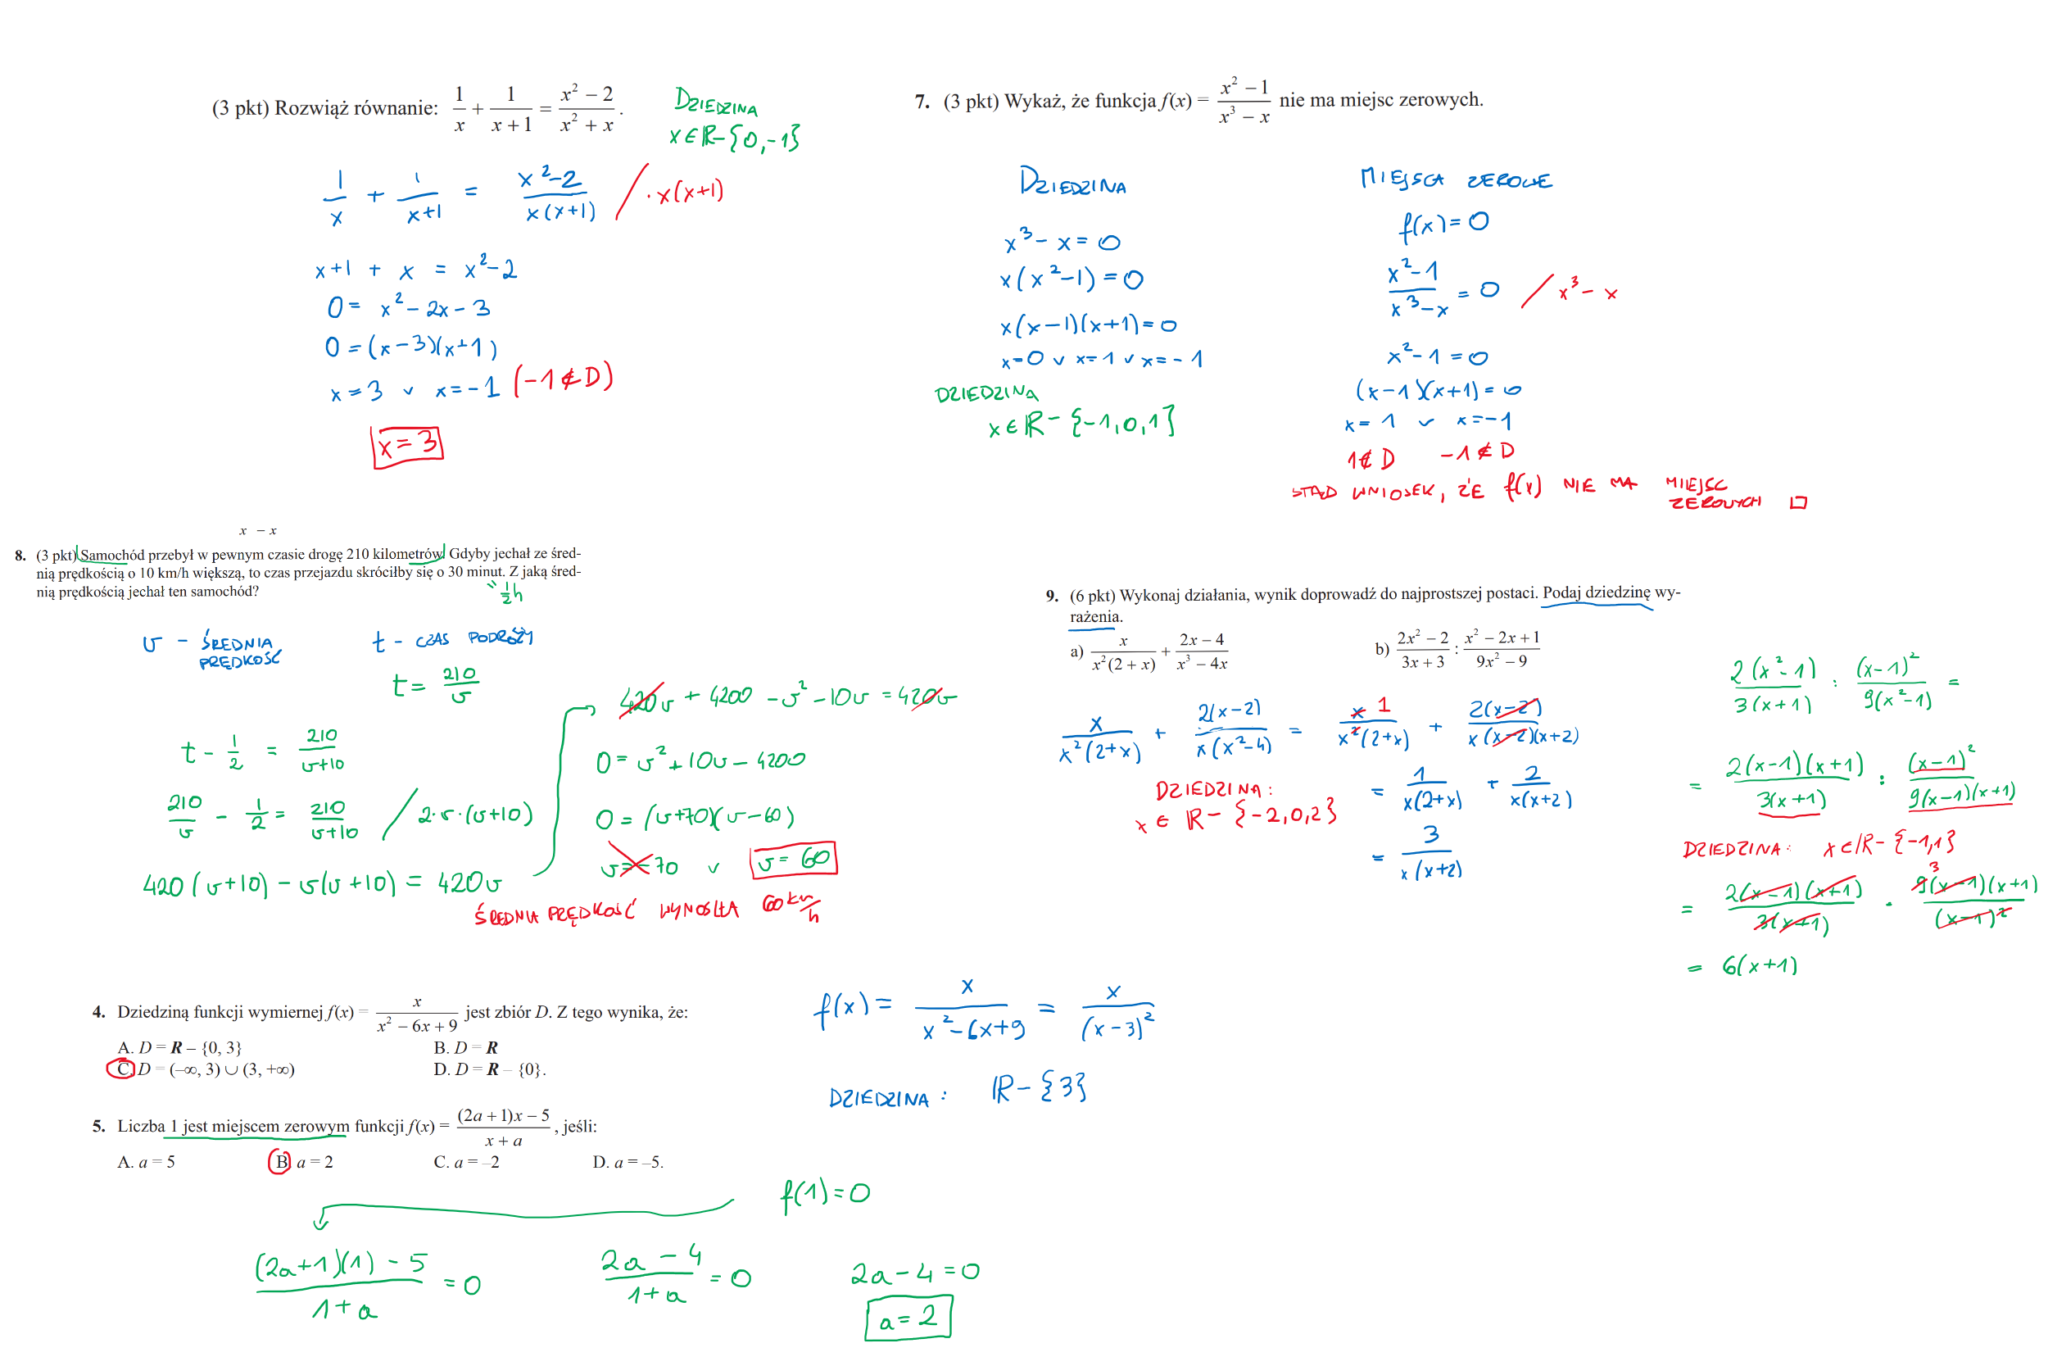 (3 pkt) Rozwiąż równanie: 1/x + 1/(x+1) = (x² − 2)/(x² + x).
DZIEDZINA
x∈ℝ−{0,−1}
1/x + 1/(x+1) = (x²−2)/(x(x+1)) / ·x(x+1)
x+1 + x = x²−2
0 = x²−2x−3
0 = (x−3)(x+1)
x=3 ∨ x=−1 (−1∉D)
x=3
7. (3 pkt) Wykaż, że funkcja f(x) = (x² − 1)/(x³ − x) nie ma miejsc zerowych.
DZIEDZINA
x³−x=0
x(x²−1)=0
x(x−1)(x+1)=0
x=0 ∨ x=1 ∨ x=−1
DZIEDZINA
x∈ℝ−{−1,0,1}
MIEJSCA ZEROWE
f(x)=0
(x²−1)/(x³−x) = 0 / x³−x
x²−1=0
(x−1)(x+1)=0
x=1 ∨ x=−1
1∉D −1∉D
STĄD WNIOSEK, ŻE f(x) NIE MA MIEJSC
ZEROWYCH □
x − x
8. (3 pkt) Samochód przebył w pewnym czasie drogę 210 kilometrów. Gdyby jechał ze śred-
nią prędkością o 10 km/h większą, to czas przejazdu skróciłby się o 30 minut. Z jaką śred-
nią prędkością jechał ten samochód?
" 1/2 h
v − ŚREDNIA
PRĘDKOŚĆ
t − CZAS PODRÓŻY
t = 210/v
t − 1/2 = 210/(v+10)
210/v − 1/2 = 210/(v+10) / 2·v·(v+10)
420(v+10) − v(v+10) = 420v
420v + 4200 − v² − 10v = 420v
0 = v² + 10v − 4200
0 = (v+70)(v−60)
v=−70 ∨ v=60
ŚREDNIA PRĘDKOŚĆ WYNOSIŁA 60 km/h
9. (6 pkt) Wykonaj działania, wynik doprowadź do najprostszej postaci. Podaj dziedzinę wy-
rażenia.
a) x/(x²(2 + x)) + (2x − 4)/(x³ − 4x)
b) (2x² − 2)/(3x + 3) : (x² − 2x + 1)/(9x² − 9)
x/(x²(2+x)) + 2(x−2)/(x(x²−4)) = x 1/(x²(2+x)) + 2(x−2)/(x(x−2)(x+2))
DZIEDZINA:
x ∈ ℝ−{−2,0,2}
= 1/(x(2+x)) + 2/(x(x+2))
= 3/(x(x+2))
2(x²−1)/(3(x+1)) : (x−1)²/(9(x²−1)) =
= 2(x−1)(x+1)/(3(x+1)) : (x−1)²/(9(x−1)(x+1))
DZIEDZINA: x∈ℝ−{−1,1}
= 2(x−1)(x+1)/(3(x+1)) · 3 9(x−1)(x+1)/(x−1)²
= 6(x+1)
4. Dziedziną funkcji wymiernej f(x) = x/(x² − 6x + 9) jest zbiór D. Z tego wynika, że:
A. D = R − {0, 3} B. D = R
C. D = (−∞, 3) ∪ (3, +∞) D. D = R − {0}.
f(x) = x/(x²−6x+9) = x/(x−3)²
DZIEDZINA: ℝ−{3}
5. Liczba 1 jest miejscem zerowym funkcji f(x) = ((2a + 1)x − 5)/(x + a), jeśli:
A. a = 5 B. a = 2 C. a = −2 D. a = −5.
f(1)=0
((2a+1)(1) − 5)/(1+a) = 0
(2a−4)/(1+a) = 0
2a−4=0
a=2